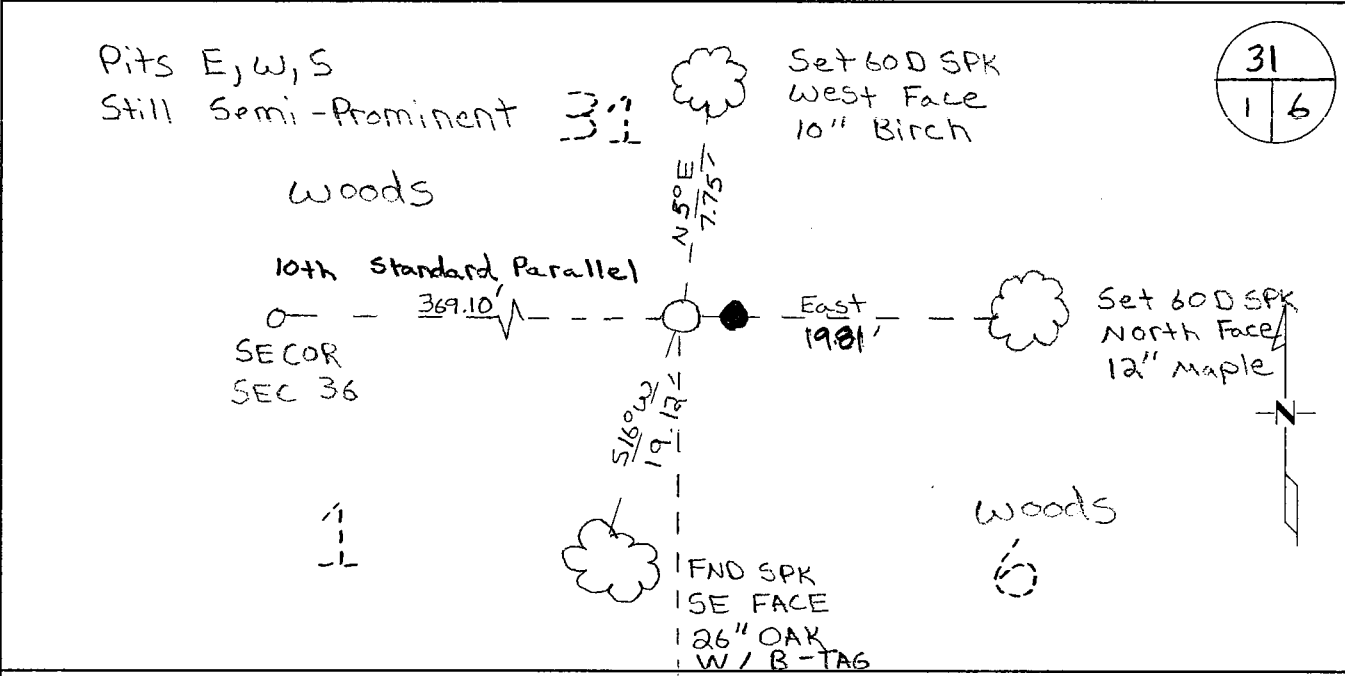 Pits E, W, S
Still Semi-Prominent
31
Set 60D SPK
West Face
10" Birch
31
1 6
woods
N 5° E
7.75'
10th Standard Parallel
369.10'
East
19.81'
Set 60D SPK
North Face
12" Maple
SE COR
SEC 36
N
S16°W
19.12'
1
woods
6
FND SPK
SE FACE
26" OAK
W / B-TAG